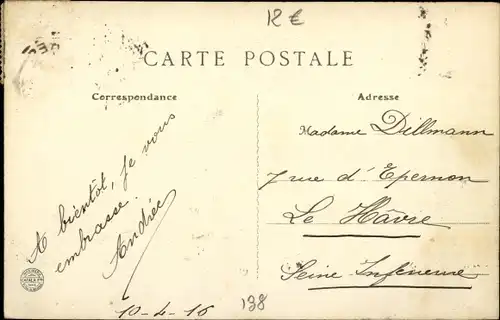 12 €
CARTE POSTALE
Correspondance
Adresse
A bientôt, je vous
embrasse.
Andrée
10-4-16
Madame Dillmann
7 rue d'Epernon
Le Hâvre
Seine Inférieure
138